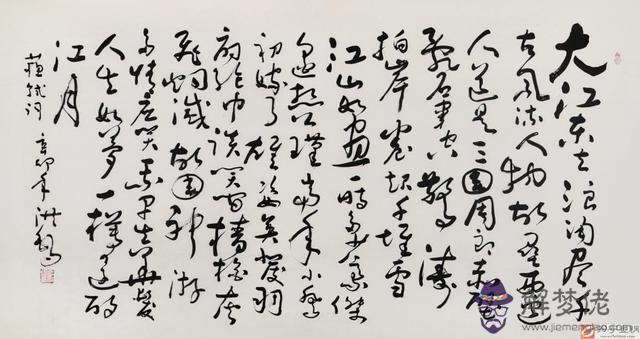 大江東去浪淘盡千
古風流人物故壘西邊
人道是三國周郎赤壁
亂石穿空驚濤
拍岸卷起千堆雪
江山如畫一時多少豪傑
遙想公瑾當年小喬
初嫁了雄姿英發羽
扇綸巾談笑間檣櫓灰
飛烟滅故國神游
多情應笑我早生華髮
人生如夢一樽還酹
江月
蘇軾詞 辛卯年
解梦佬